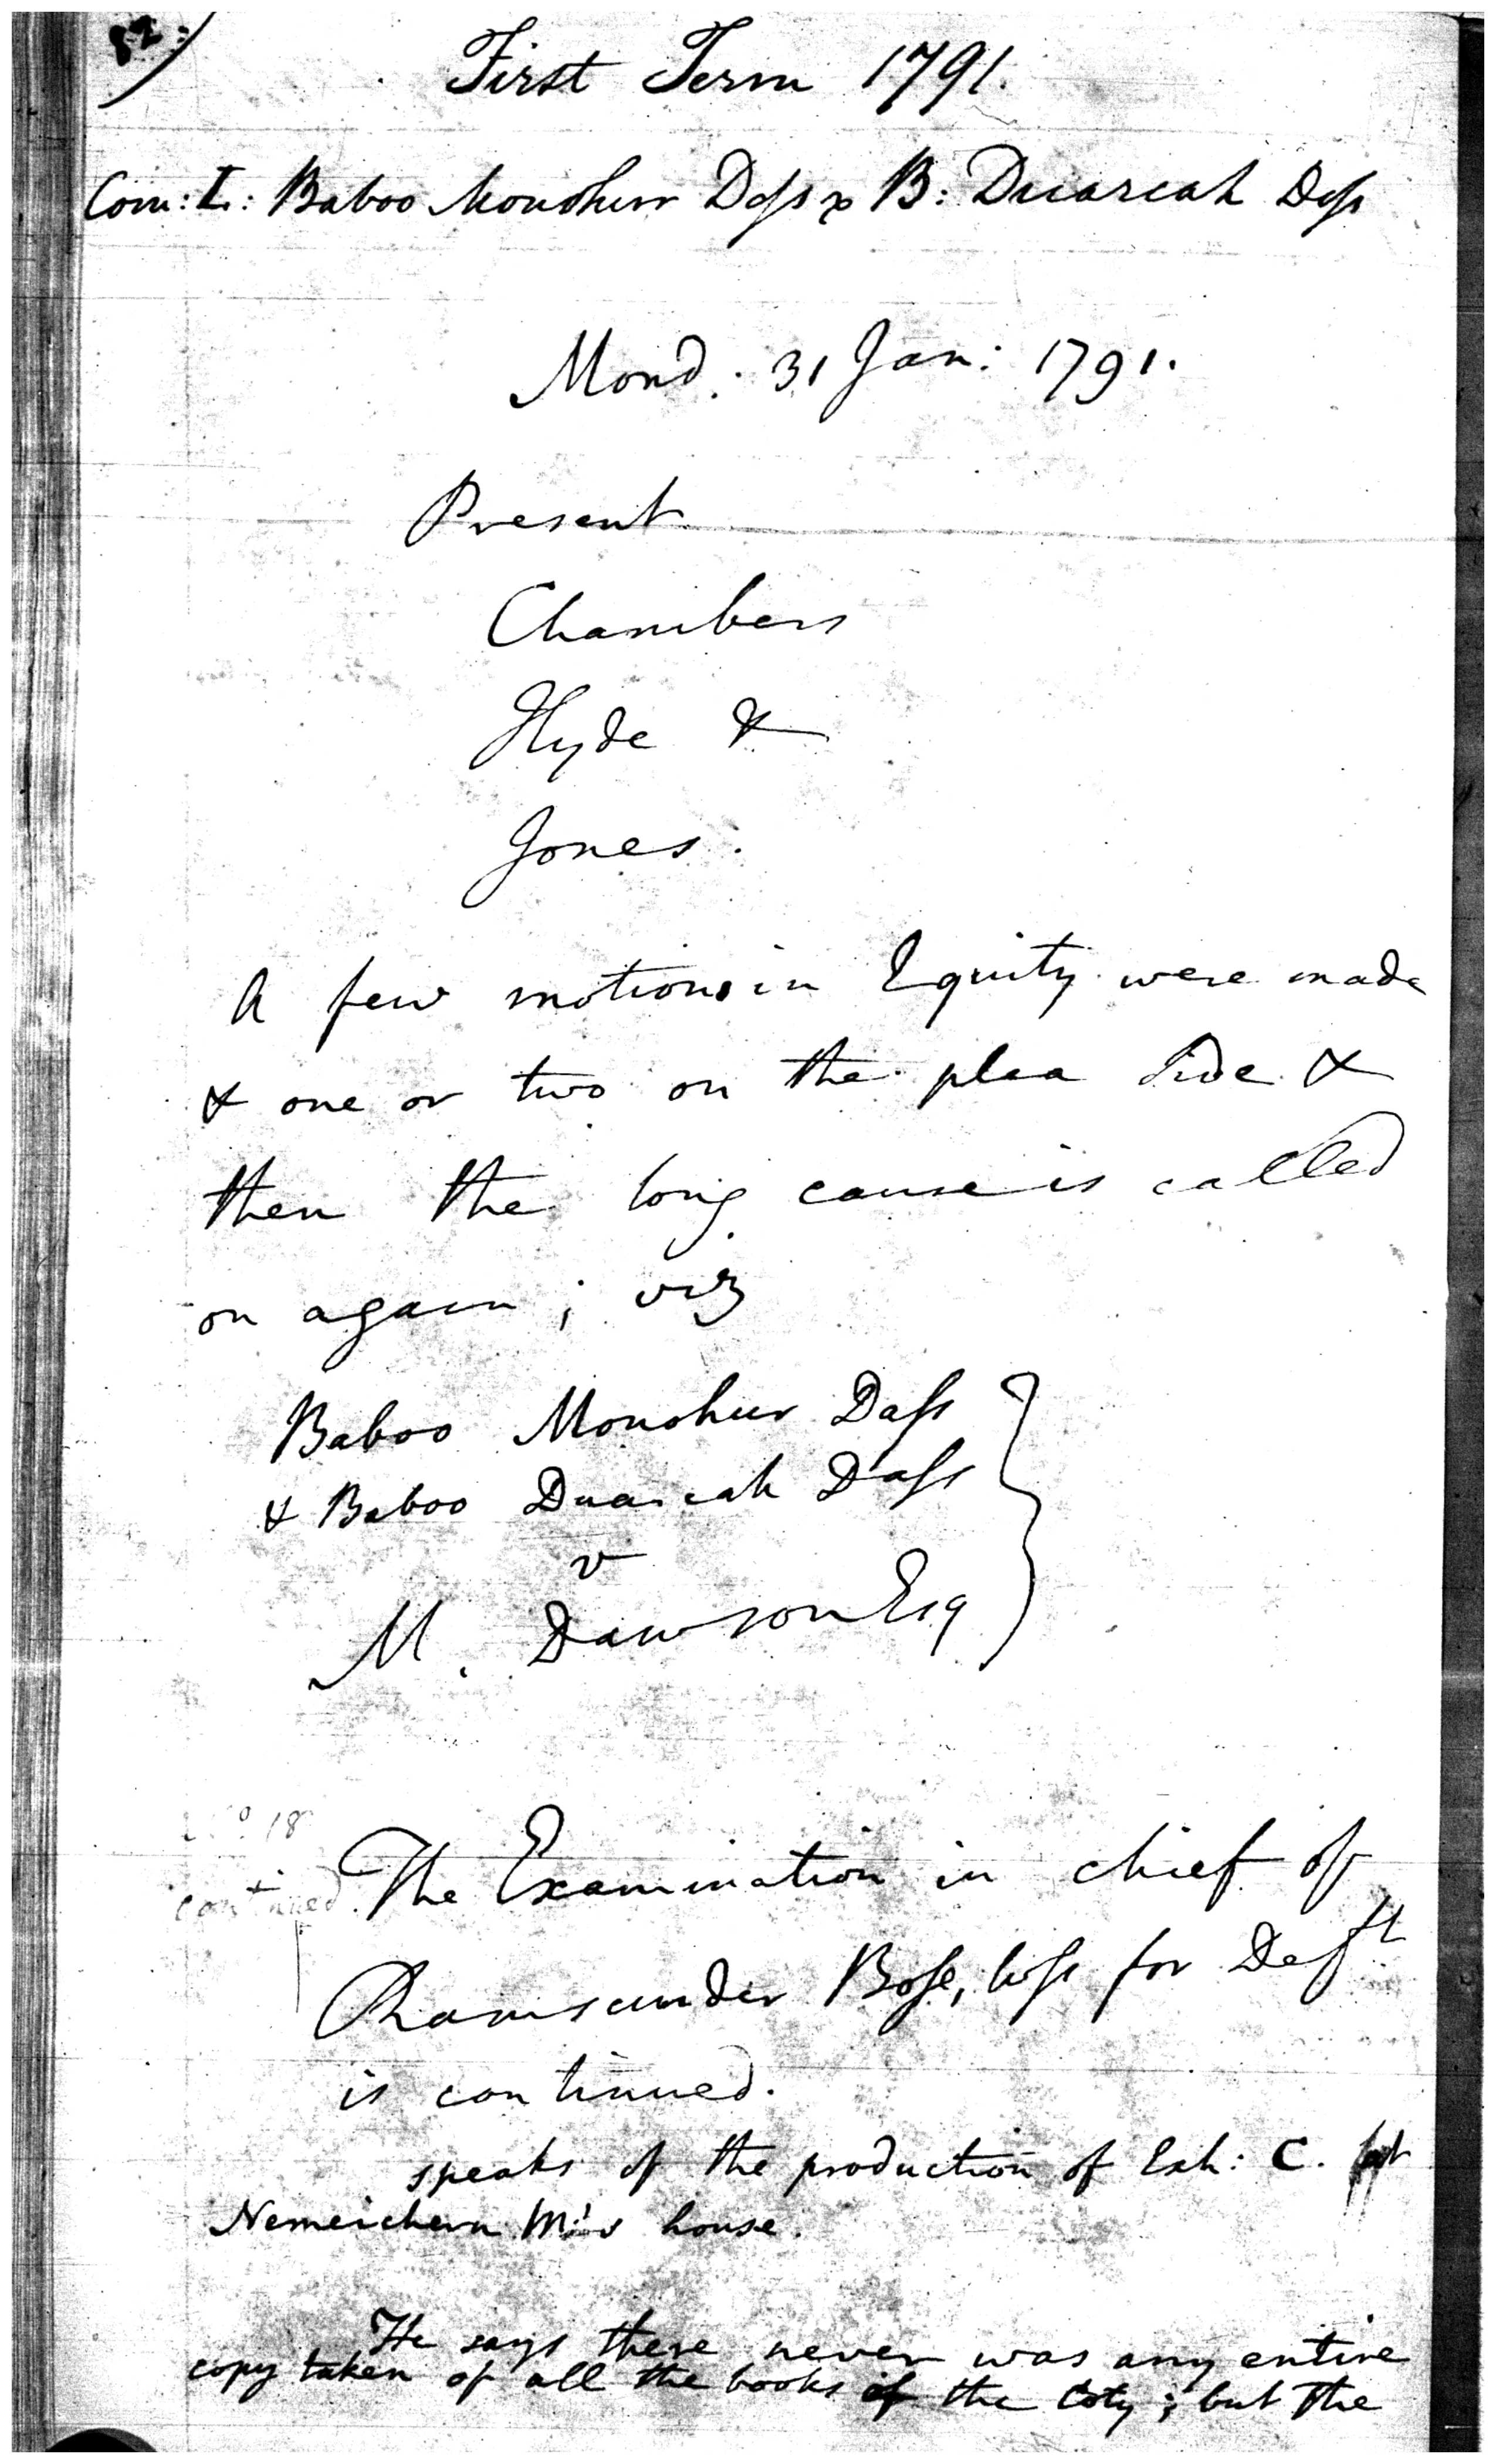 82:
First Term 1791.
Com: L: Baboo Monohur Dass & B: Duarcah Dass
Mond. 31 Jan: 1791.
Present
Chambers
Hyde &
Jones.
A few motions in Equity were made
& one or two on the plea side &
then the long cause is called
on again; viz
Baboo Monohur Dass
& Baboo Duarcah Dass
v
M. Dawson Esq
No. 18
continued.
The Examination in chief of
Ramsunder Bose, wss for Deft
is continued.
speaks of the production of Exh: C. at
Nemeichern M:'s house.
He says there never was any entire
copy taken of all the books of the Coty; but the